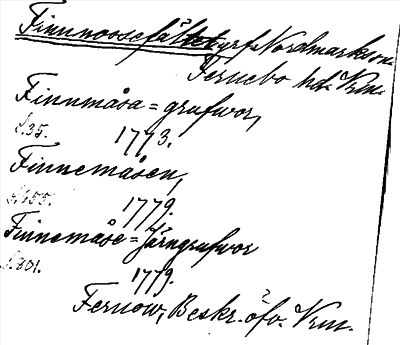 Finnmossefältet grf. Nordmarks sn.
Fernebo hd. Vrm.
Finnmåsa=grufvor,
s.35. 1773.
Finnemåsen,
s.155. 1779.
Finnemåse=Järngrufvor
s.301. 1779.
Fernow, Beskr. öfv. Vrm.